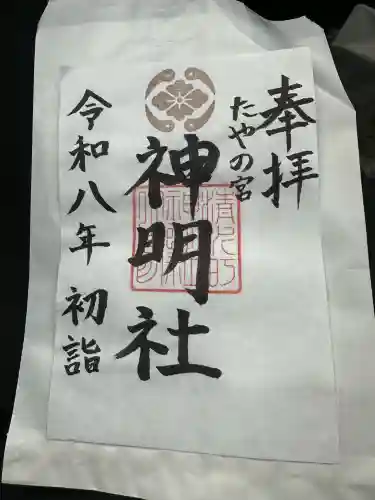 奉拝
たやの宮
神明社
令和八年 初詣